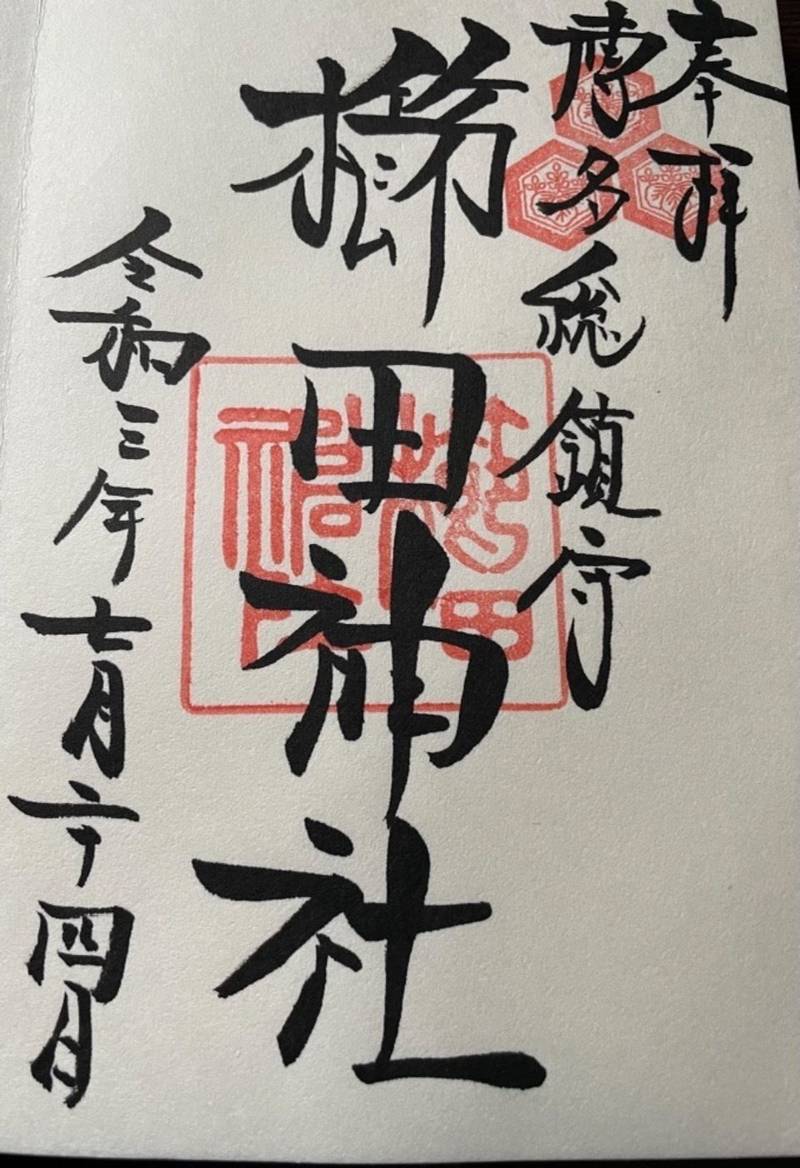 奉拝
博多総鎮守
櫛田神社
令和三年七月二十四日